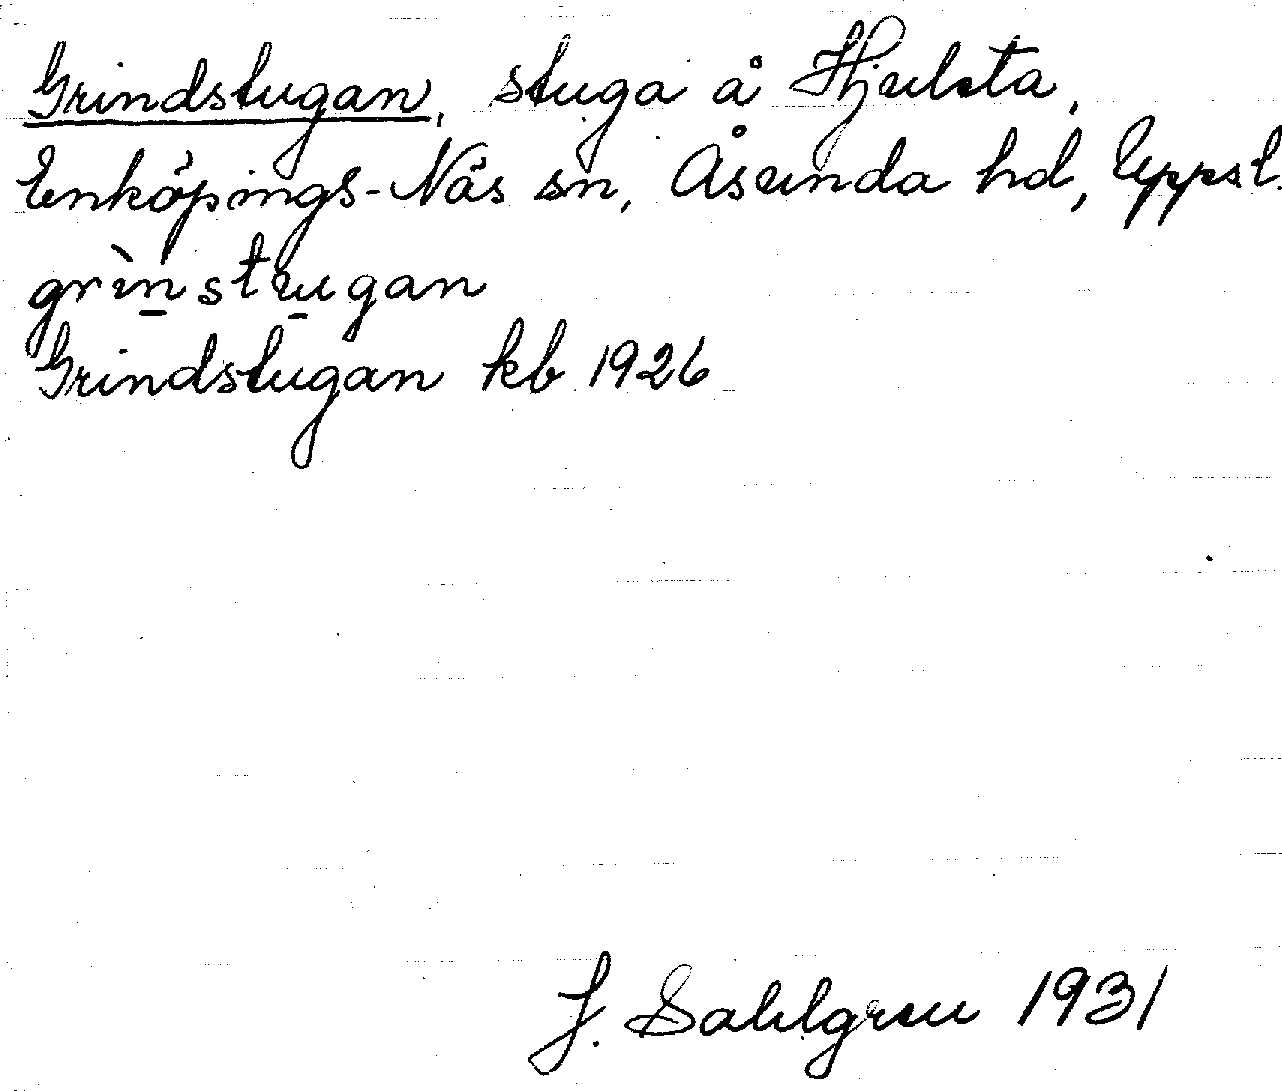 Grindstugan, stuga å Hjulsta,
Enköpings-Näs sn, Åsunda hd, Uppsl.
grìn̲stu̲gan
Grindstugan kb 1926
J. Sahlgren 1931